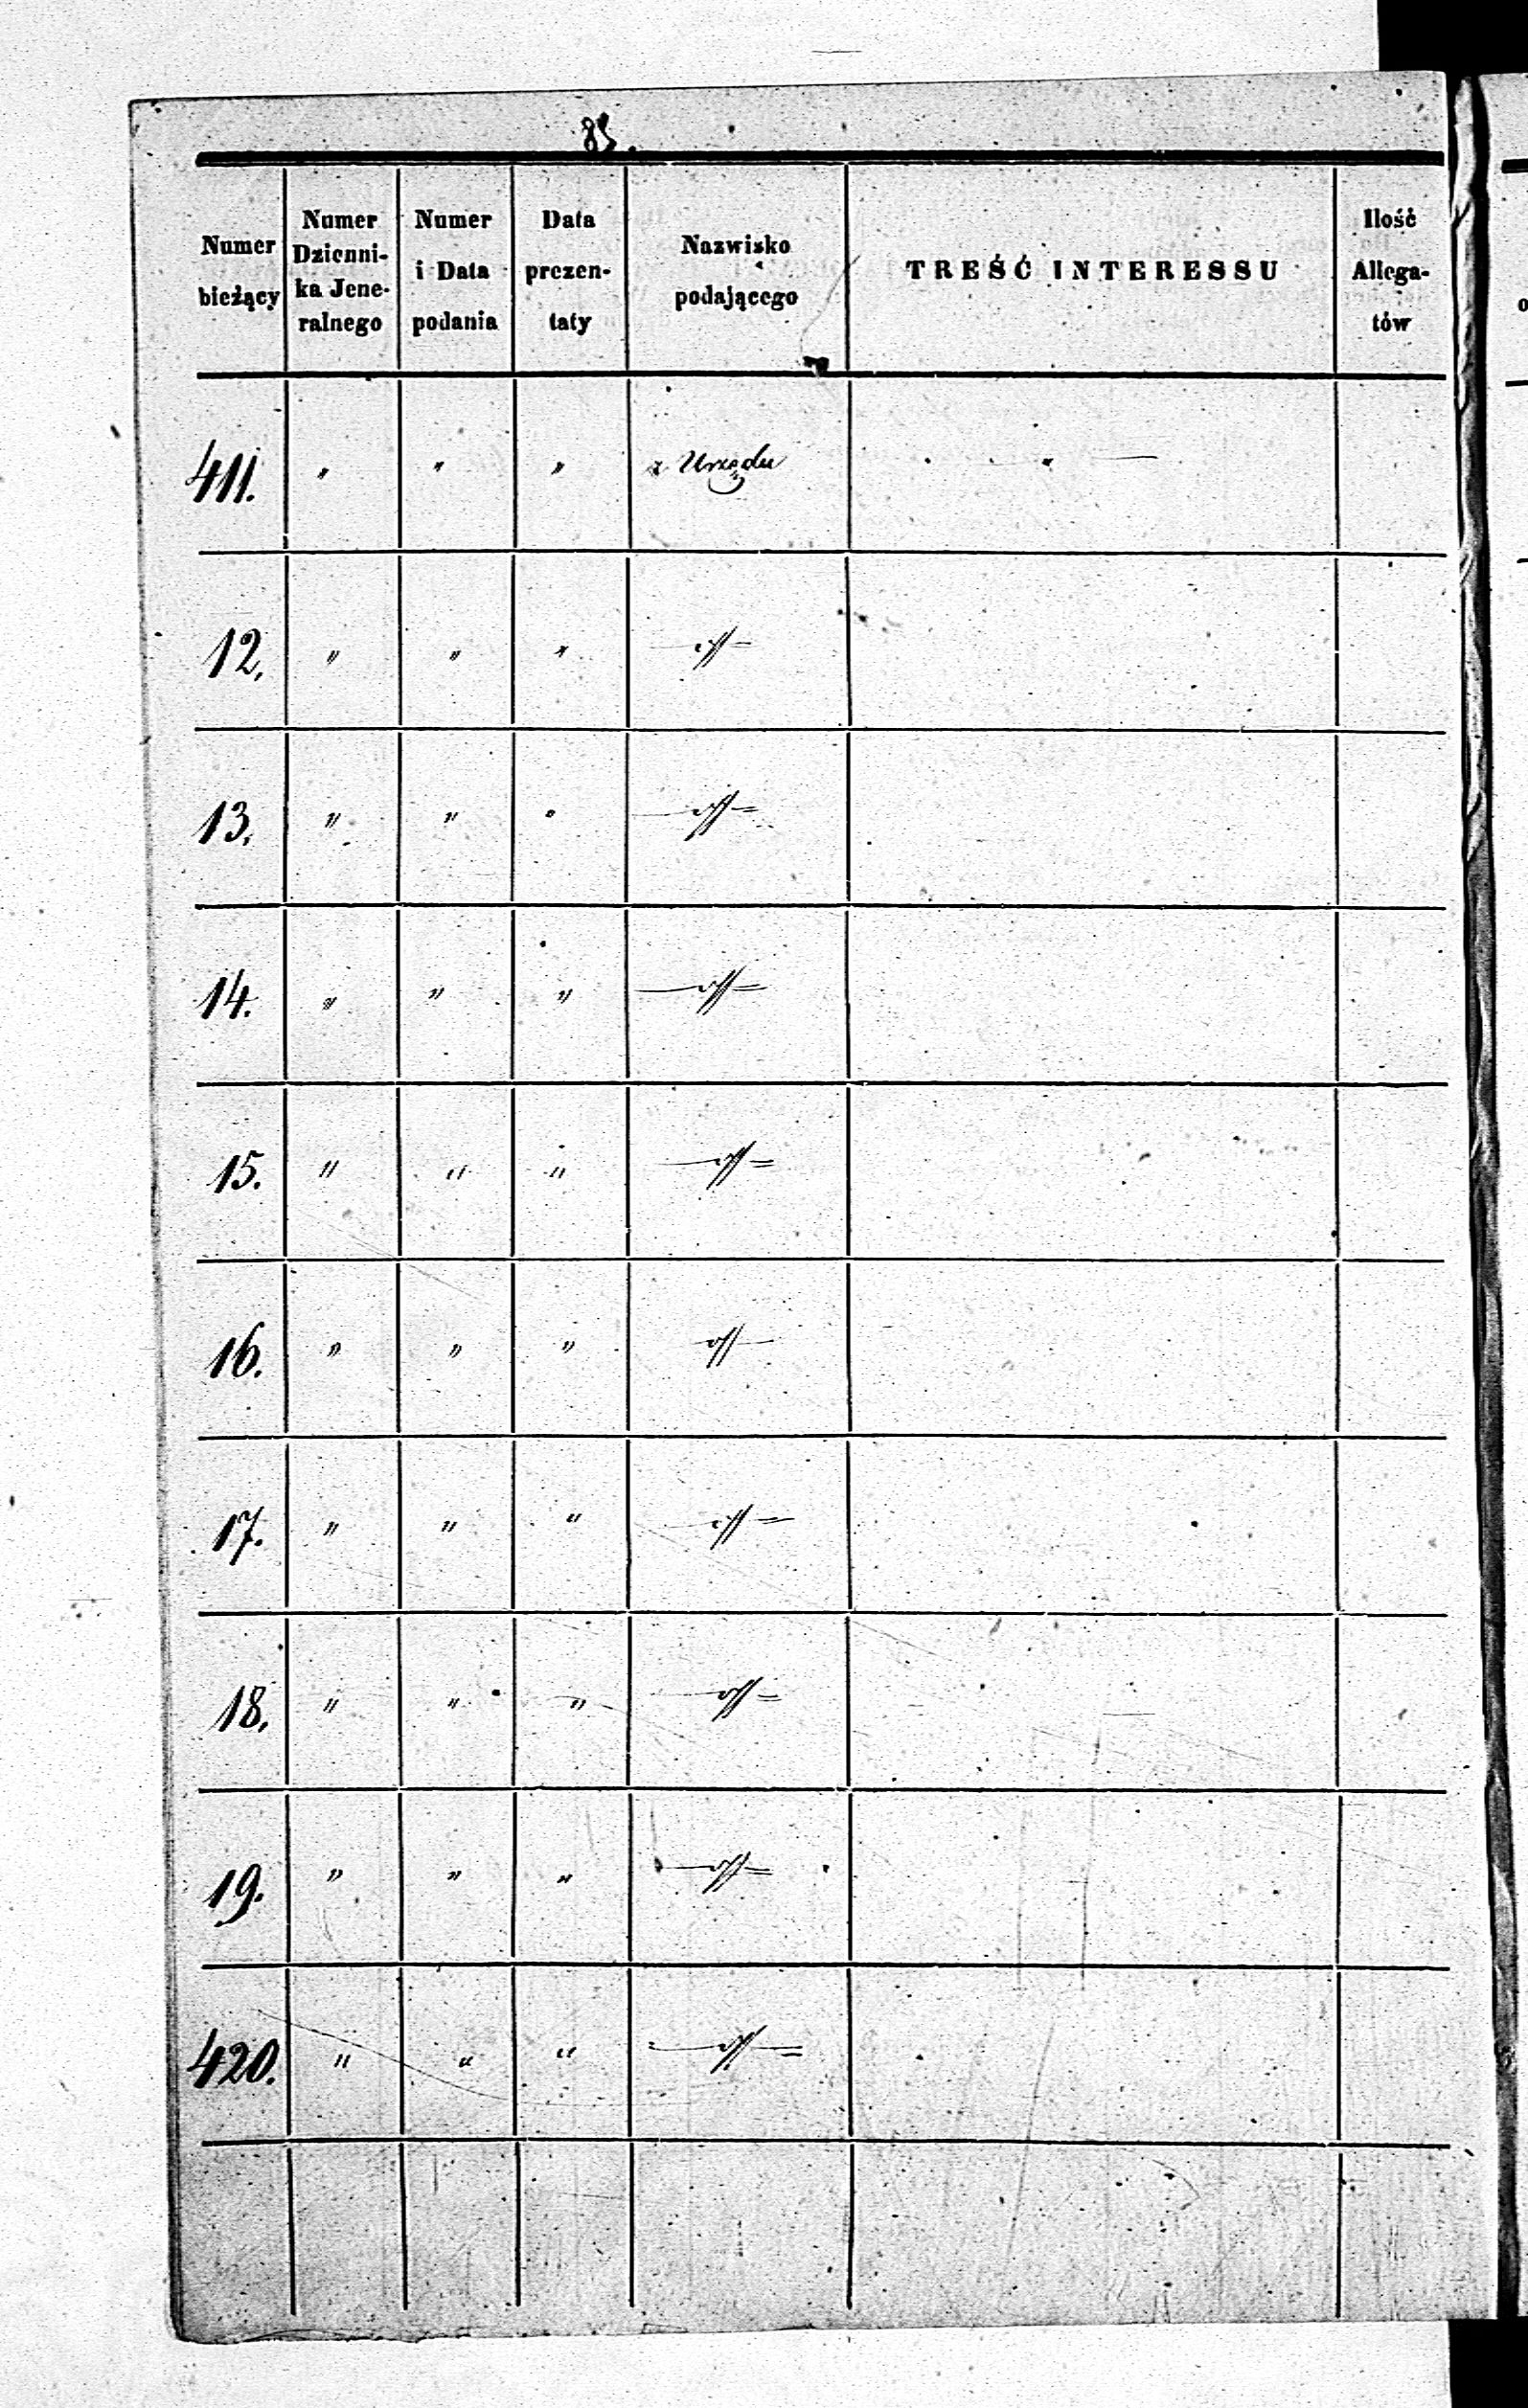 85.
Numer bieżący | Numer Dzienni- ka Jene- ralnego | Numer i Data podania | Data prezen- taty | Nazwisko podającego | TREŚĆ INTERESSU | Ilość Allega- tów
411. | " | " | " | z Urzędu | " —
12. | " | " | " | —//—
13. | " | " | " | —//—
14. | " | " | " | —//—
15. | " | " | " | —//—
16. | " | " | " | —//—
17. | " | " | " | —//—
18. | " | " | " | —//—
19. | " | " | " | —//—
420. | " | " | " | —//—